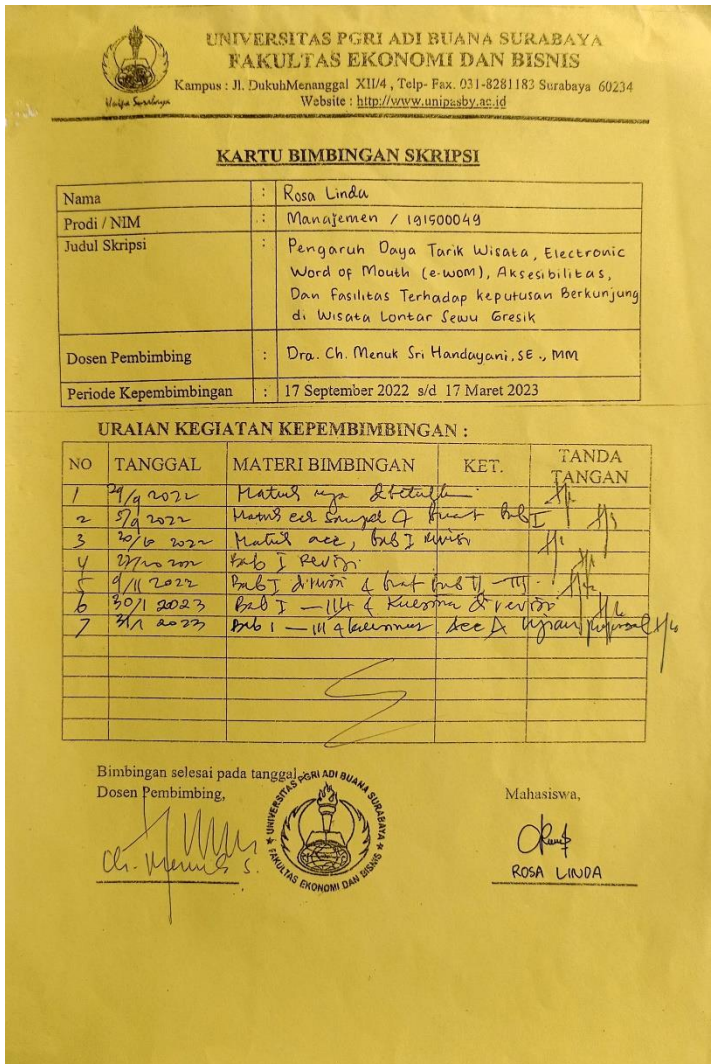 UNIVERSITAS PGRI ADI BUANA SURABAYA
FAKULTAS EKONOMI DAN BISNIS
Kampus : Jl. DukuhMenanggal XII/4 , Telp- Fax. 031-8281183 Surabaya 60234
Website : http://www.unipasby.ac.id
Unipa Surabaya
KARTU BIMBINGAN SKRIPSI
Nama : Rosa Linda
Prodi / NIM : Manajemen / 191500049
Judul Skripsi : Pengaruh Daya Tarik Wisata, Electronic
Word of Mouth (e-wom), Aksesibilitas,
Dan Fasilitas Terhadap keputusan Berkunjung
di Wisata Lontar Sewu Gresik
Dosen Pembimbing : Dra. Ch. Menuk Sri Handayani, SE., MM
Periode Kepembimbingan : 17 September 2022 s/d 17 Maret 2023
URAIAN KEGIATAN KEPEMBIMBINGAN :
NO TANGGAL MATERI BIMBINGAN KET. TANDA
TANGAN
1 2022
2 2022 Bab I
3 2022 acc, bab I revisi
4 Bab I Revisi
5 9/11 2022 Bab I
6 30/1 2023 Bab I - III & revisi
7 31/1 2023 Bab I - III & Acc
Bimbingan selesai pada tanggal
Dosen Pembimbing, Mahasiswa,
UNIVERSITAS PGRI ADI BUANA SURABAYA
FAKULTAS EKONOMI DAN BISNIS
Ch. Menuk S.
ROSA LINDA